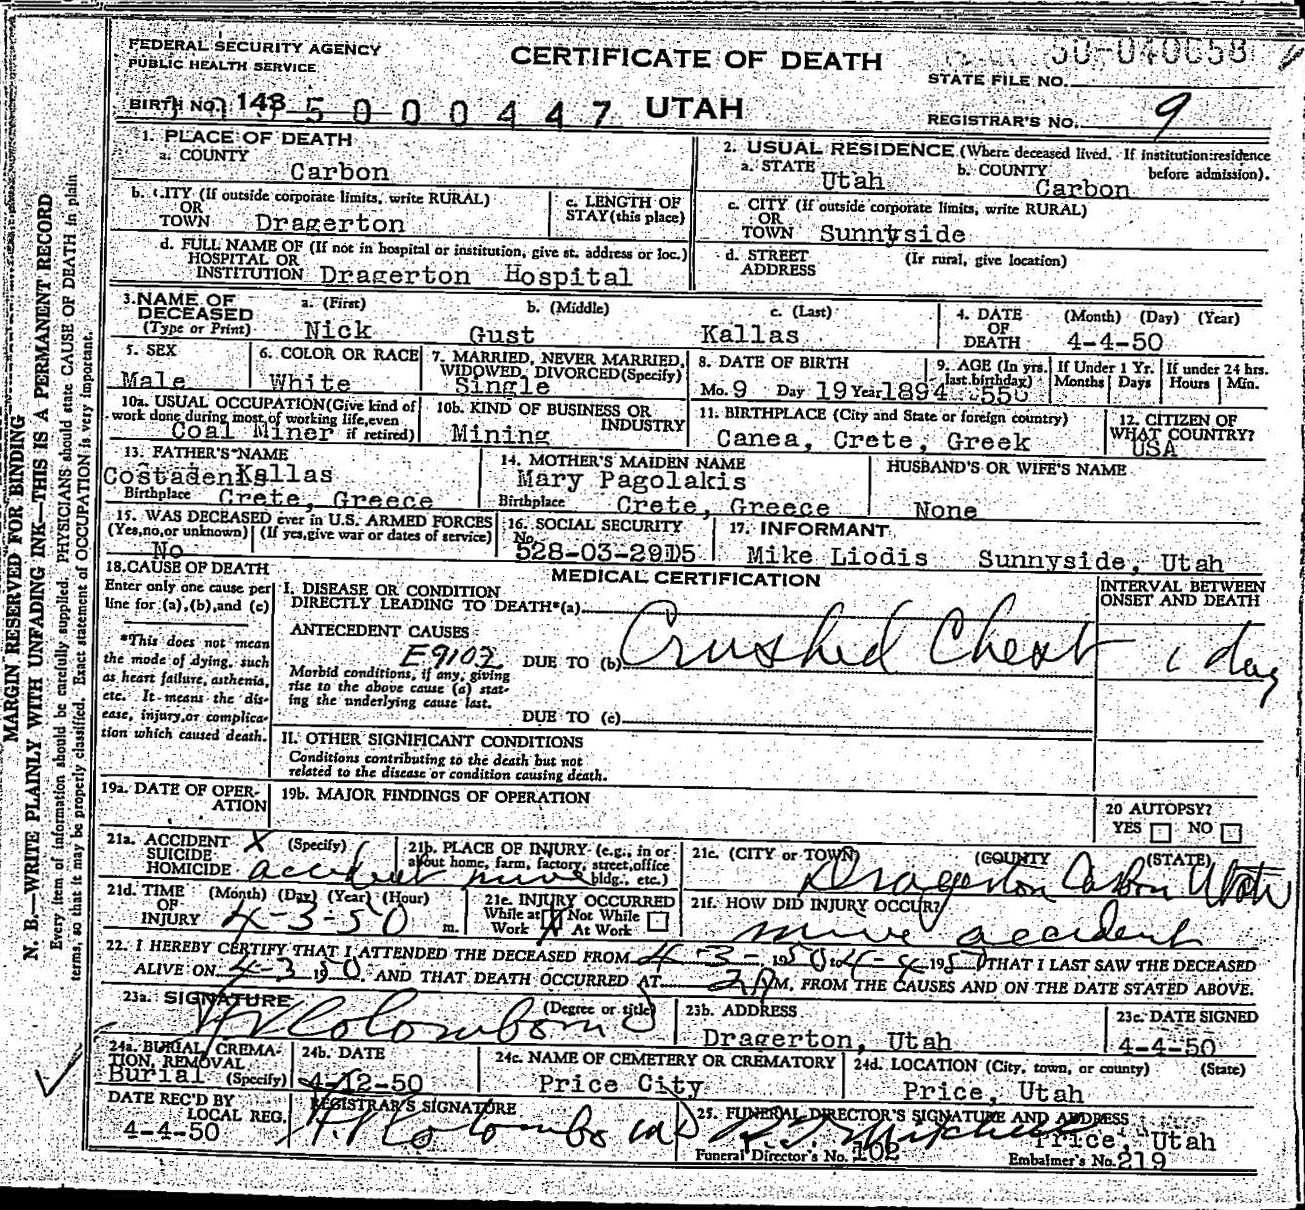 FEDERAL SECURITY AGENCY
PUBLIC HEALTH SERVICE
CERTIFICATE OF DEATH
UTAH
STATE FILE NO. 50-040658
BIRTH NO. 143 5 0 0 0 4 4 7
REGISTRAR'S NO. 9
1. PLACE OF DEATH
a. COUNTY
Carbon
b. CITY (If outside corporate limits, write RURAL)
OR
TOWN Dragerton
c. LENGTH OF
STAY (this place)
d. FULL NAME OF (If not in hospital or institution, give st. address or loc.)
HOSPITAL OR
INSTITUTION Dragerton Hospital
2. USUAL RESIDENCE (Where deceased lived. If institution: residence
before admission).
a. STATE Utah b. COUNTY Carbon
c. CITY (If outside corporate limits, write RURAL)
OR
TOWN Sunnyside
d. STREET (If rural, give location)
ADDRESS
3. NAME OF DECEASED
(Type or Print)
a. (First) b. (Middle) c. (Last)
Nick Gust Kallas
4. DATE OF DEATH (Month) (Day) (Year)
4-4-50
5. SEX
Male
6. COLOR OR RACE
White
7. MARRIED, NEVER MARRIED,
WIDOWED, DIVORCED (Specify)
Single
8. DATE OF BIRTH
Mo. 9 Day 19 Year 1894
9. AGE (In yrs. last birthday) 55
If Under 1 Yr. If under 24 hrs.
Months Days Hours Min.
10a. USUAL OCCUPATION (Give kind of
work done during most of working life, even
if retired)
Coal Miner
10b. KIND OF BUSINESS OR
INDUSTRY
Mining
11. BIRTHPLACE (City and State or foreign country)
Canea, Crete, Greek
12. CITIZEN OF
WHAT COUNTRY?
USA
13. FATHER'S NAME
Costaden Kallas
Birthplace Crete, Greece
14. MOTHER'S MAIDEN NAME
Mary Pagolakis
Birthplace Crete, Greece
HUSBAND'S OR WIFE'S NAME
None
15. WAS DECEASED ever in U.S. ARMED FORCES
(Yes, no, or unknown) (If yes, give war or dates of service)
No
16. SOCIAL SECURITY
No.
17. INFORMANT
Mike Liodis Sunnyside, Utah
18. CAUSE OF DEATH
Enter only one cause per
line for (a), (b), and (c)
*This does not mean
the mode of dying, such
as heart failure, asthenia,
etc. It means the dis-
ease, injury, or complica-
tion which caused death.
MEDICAL CERTIFICATION
I. DISEASE OR CONDITION
DIRECTLY LEADING TO DEATH*(a)
ANTECEDENT CAUSES
E9102 DUE TO (b) Crushed Chest
Morbid conditions, if any, giving
rise to the above cause (a) stat-
ing the underlying cause last.
DUE TO (c)
INTERVAL BETWEEN
ONSET AND DEATH
1 day
II. OTHER SIGNIFICANT CONDITIONS
Conditions contributing to the death but not
related to the disease or condition causing death.
19a. DATE OF OPER-
ATION
19b. MAJOR FINDINGS OF OPERATION
20 AUTOPSY?
YES NO
21a. ACCIDENT X (Specify)
SUICIDE
HOMICIDE accident
21b. PLACE OF INJURY (e.g., in or
about home, farm, factory, street, office
bldg., etc.)
mine
21c. (CITY or TOWN) (COUNTY) (STATE)
Dragerton Carbon Utah
21d. TIME (Month) (Day) (Year) (Hour)
OF
INJURY 4-3-50 m.
21e. INJURY OCCURRED
While at Work X Not While At Work
21f. HOW DID INJURY OCCUR?
mine accident
22. I HEREBY CERTIFY THAT I ATTENDED THE DECEASED FROM 4-3-, 1950 to 4-4, 1950 THAT I LAST SAW THE DECEASED
ALIVE ON 4-3 1950, AND THAT DEATH OCCURRED AT M. FROM THE CAUSES AND ON THE DATE STATED ABOVE.
23a. SIGNATURE (Degree or title)
Colombo m D
23b. ADDRESS
Dragerton, Utah
23c. DATE SIGNED
4-4-50
24a. BURIAL, CREMA-
TION, REMOVAL
Burial (Specify)
24b. DATE
4-12-50
24c. NAME OF CEMETERY OR CREMATORY
Price City
24d. LOCATION (City, town, or county) (State)
Price, Utah
DATE REC'D BY
LOCAL REG.
4-4-50
REGISTRAR'S SIGNATURE
Colombo MD
25. FUNERAL DIRECTOR'S SIGNATURE AND ADDRESS
Mitchell
Price, Utah
Funeral Director's No. 102 Embalmer's No. 219
MARGIN RESERVED FOR BINDING
N. B.—WRITE PLAINLY WITH UNFADING INK—THIS IS A PERMANENT RECORD
Every item of information should be carefully supplied. PHYSICIANS should state CAUSE OF DEATH in plain
terms, so that it may be properly classified. Exact statement of OCCUPATION is very important.